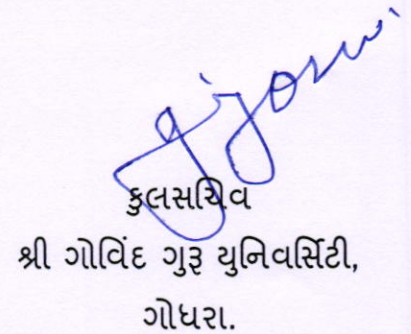 કુલસચિવ
શ્રી ગોવિંદ ગુરૂ યુનિવર્સિટી,
ગોધરા.